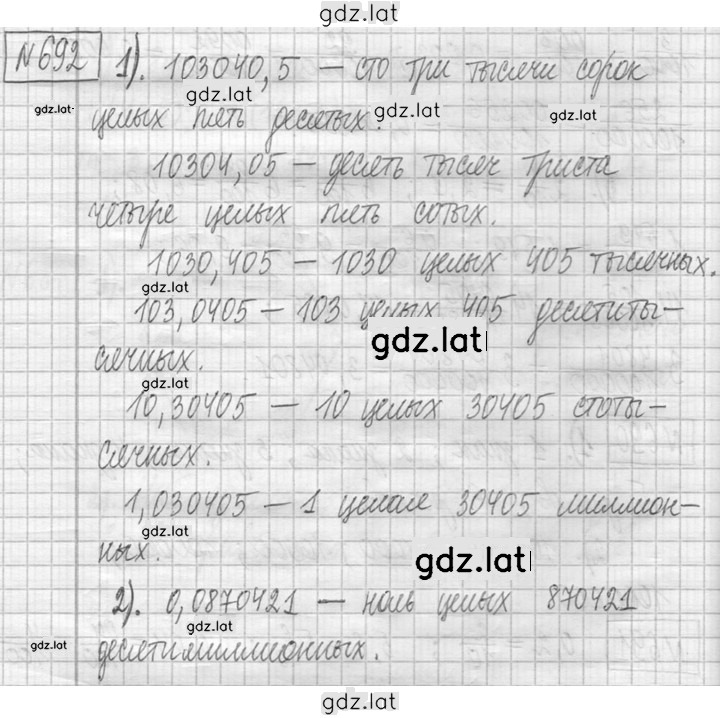 gdz.lat
№692 1). 103040,5 — сто три тысячи сорок
gdz.lat gdz.lat
целых пять десятых. gdz.lat
10304,05 — десять тысяч триста
четыре целых пять сотых.
1030,405 — 1030 целых 405 тысячных.
gdz.lat
103,0405 — 103 целых 405 десятиты-
gdz.lat
сячных.
gdz.lat
10,30405 — 10 целых 30405 стоты-
сячных.
1,030405 — 1 целая 30405 миллион-
gdz.lat
ных. gdz.lat
2). 0,0870421 — ноль целых 870421
gdz.lat
gdz.lat десятимиллионных.
gdz.lat